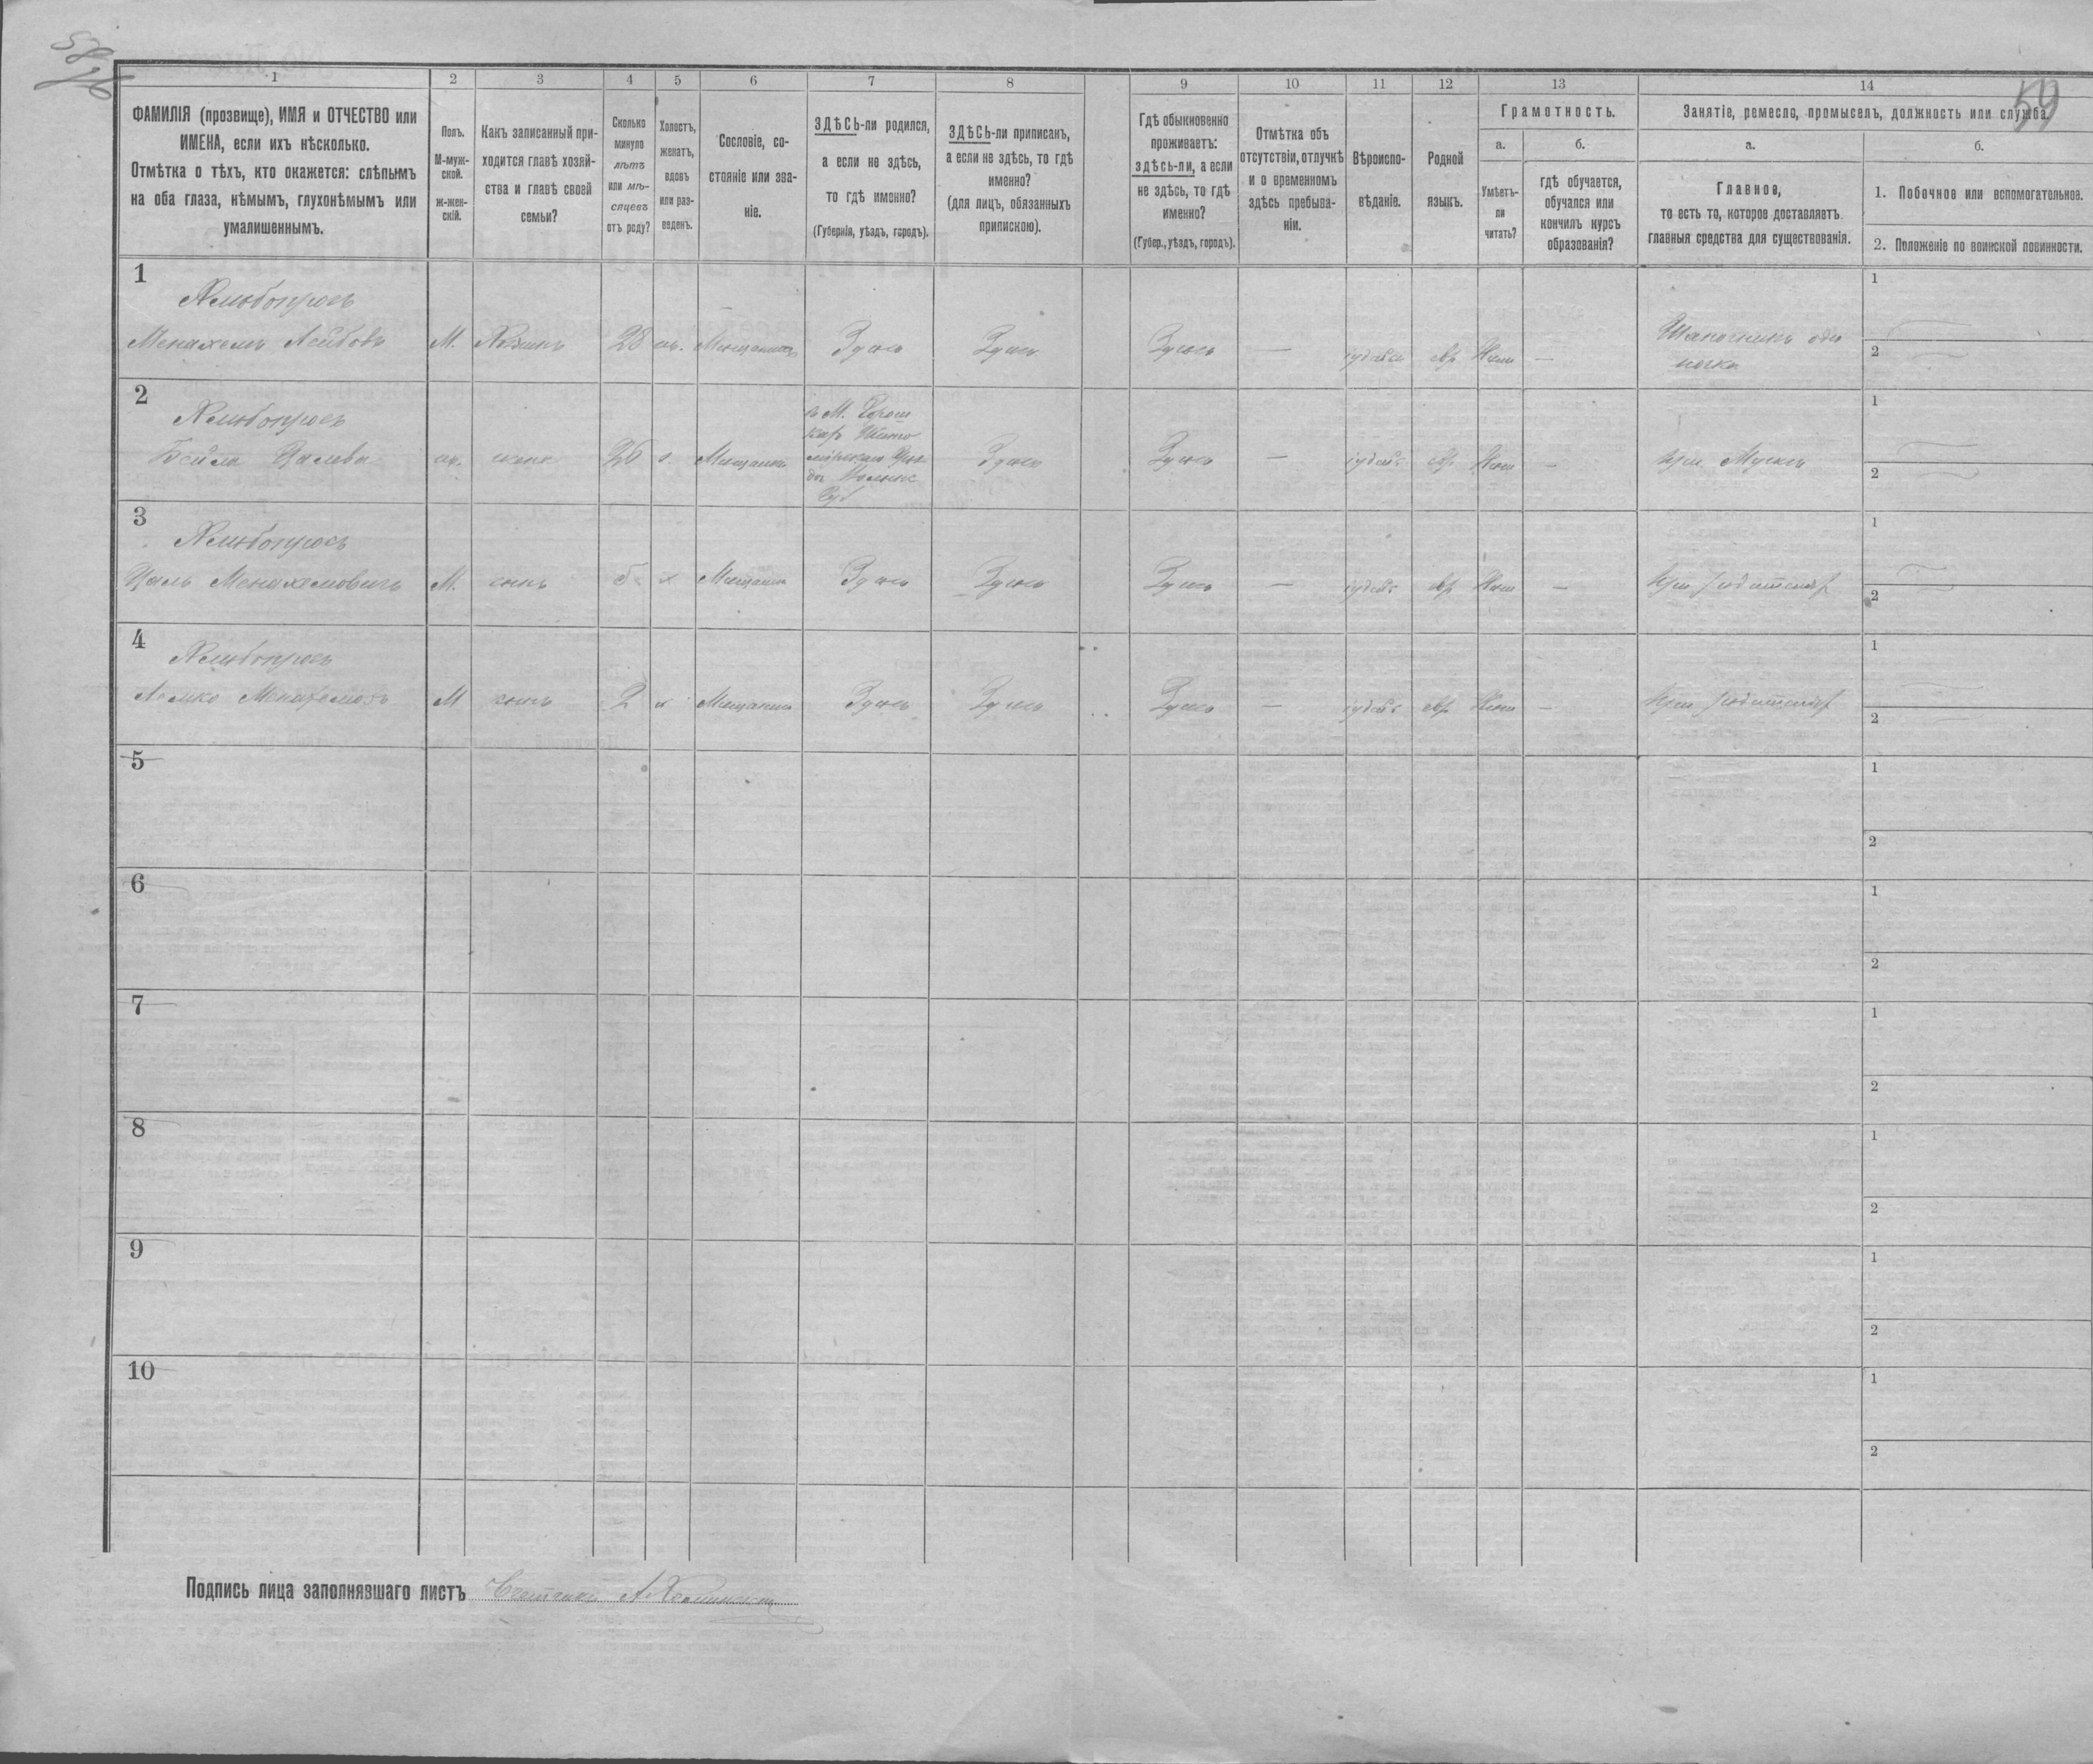 58 об
59
1
2
3
4
5
6
7
8
9
10
11
12
13
14
ФАМИЛІЯ (прозвище), ИМЯ и ОТЧЕСТВО или
ИМЕНА, если ихъ нѣсколько.
Отмѣтка о тѣхъ, кто окажется: слѣпымъ
на оба глаза, нѣмымъ, глухонѣмымъ или
умалишеннымъ.
Полъ.
М-муж-
ской.
ж-жен-
скій.
Какъ записанный при-
ходится главѣ хозяй-
ства и главѣ своей
семьи?
Сколько
минуло
лѣтъ
или мѣ-
сяцевъ
отъ роду?
Холостъ,
женатъ,
вдовъ
или раз-
веденъ.
Сословіе, со-
стояніе или зва-
ніе.
ЗДѢСЬ-ли родился,
а если не здѣсь,
то гдѣ именно?
(Губернія, уѣздъ, городъ).
ЗДѢСЬ-ли приписанъ,
а если не здѣсь, то гдѣ
именно?
(для лицъ, обязанныхъ
припискою).
Гдѣ обыкновенно
проживаетъ:
здѣсь-ли, а если
не здѣсь, то гдѣ
именно?
(Губер., уѣздъ, городъ).
Отмѣтка объ
отсутствіи, отлучкѣ
и о временномъ
здѣсь пребыва-
ніи.
Вѣроиспо-
вѣданіе.
Родной
языкъ.
Грамотность.
а.
Умѣетъ-
ли
читать?
б.
гдѣ обучается,
обучался или
кончилъ курсъ
образованія?
Занятіе, ремесло, промыселъ, должность или служба.
а.
Главное,
то есть то, которое доставляетъ
главныя средства для существованія.
б.
1. Побочное или вспомогательное.
2. Положеніе по воинской повинности.
1
Менахемъ Лейбовъ
М.
Хозяинъ
28
ж.
Мещанинъ
Здѣсь
Здѣсь
Здѣсь
—
іудейск
евр
Нѣтъ
—
Шапочникъ оди
ночка
1
2
2
Бейла
ж.
жена
26
з.
Мещанка
Здѣсь
Здѣсь
—
іудейс
евр
Нѣтъ
—
при Мужѣ
1
2
3
Цаль Менахемовичъ
М.
сынъ
5
х
Мещанин
Здѣсь
Здѣсь
Здѣсь
—
іудейс
евр
Нѣтъ
—
при родителяхъ
1
2
4
М
сынъ
2
х
Мещанин
Здѣсь
Здѣсь
Здѣсь
—
іудейс
евр
Нѣтъ
—
при родителяхъ
1
2
5
1
2
6
1
2
7
1
2
8
1
2
9
1
2
10
1
2
Подпись лица заполнявшаго листъ Счетчикъ